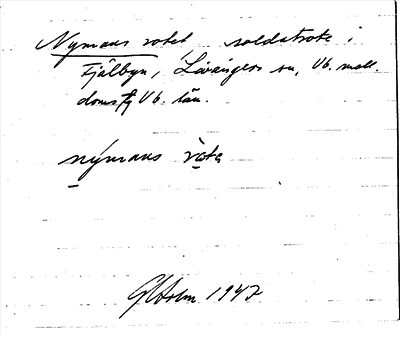 Nymans rotet, soldatrote i
Fjälbyn, Lövångers sn, Vb. mell.
doms tg Vb. län.
nýmans ròta
G Holm 1947